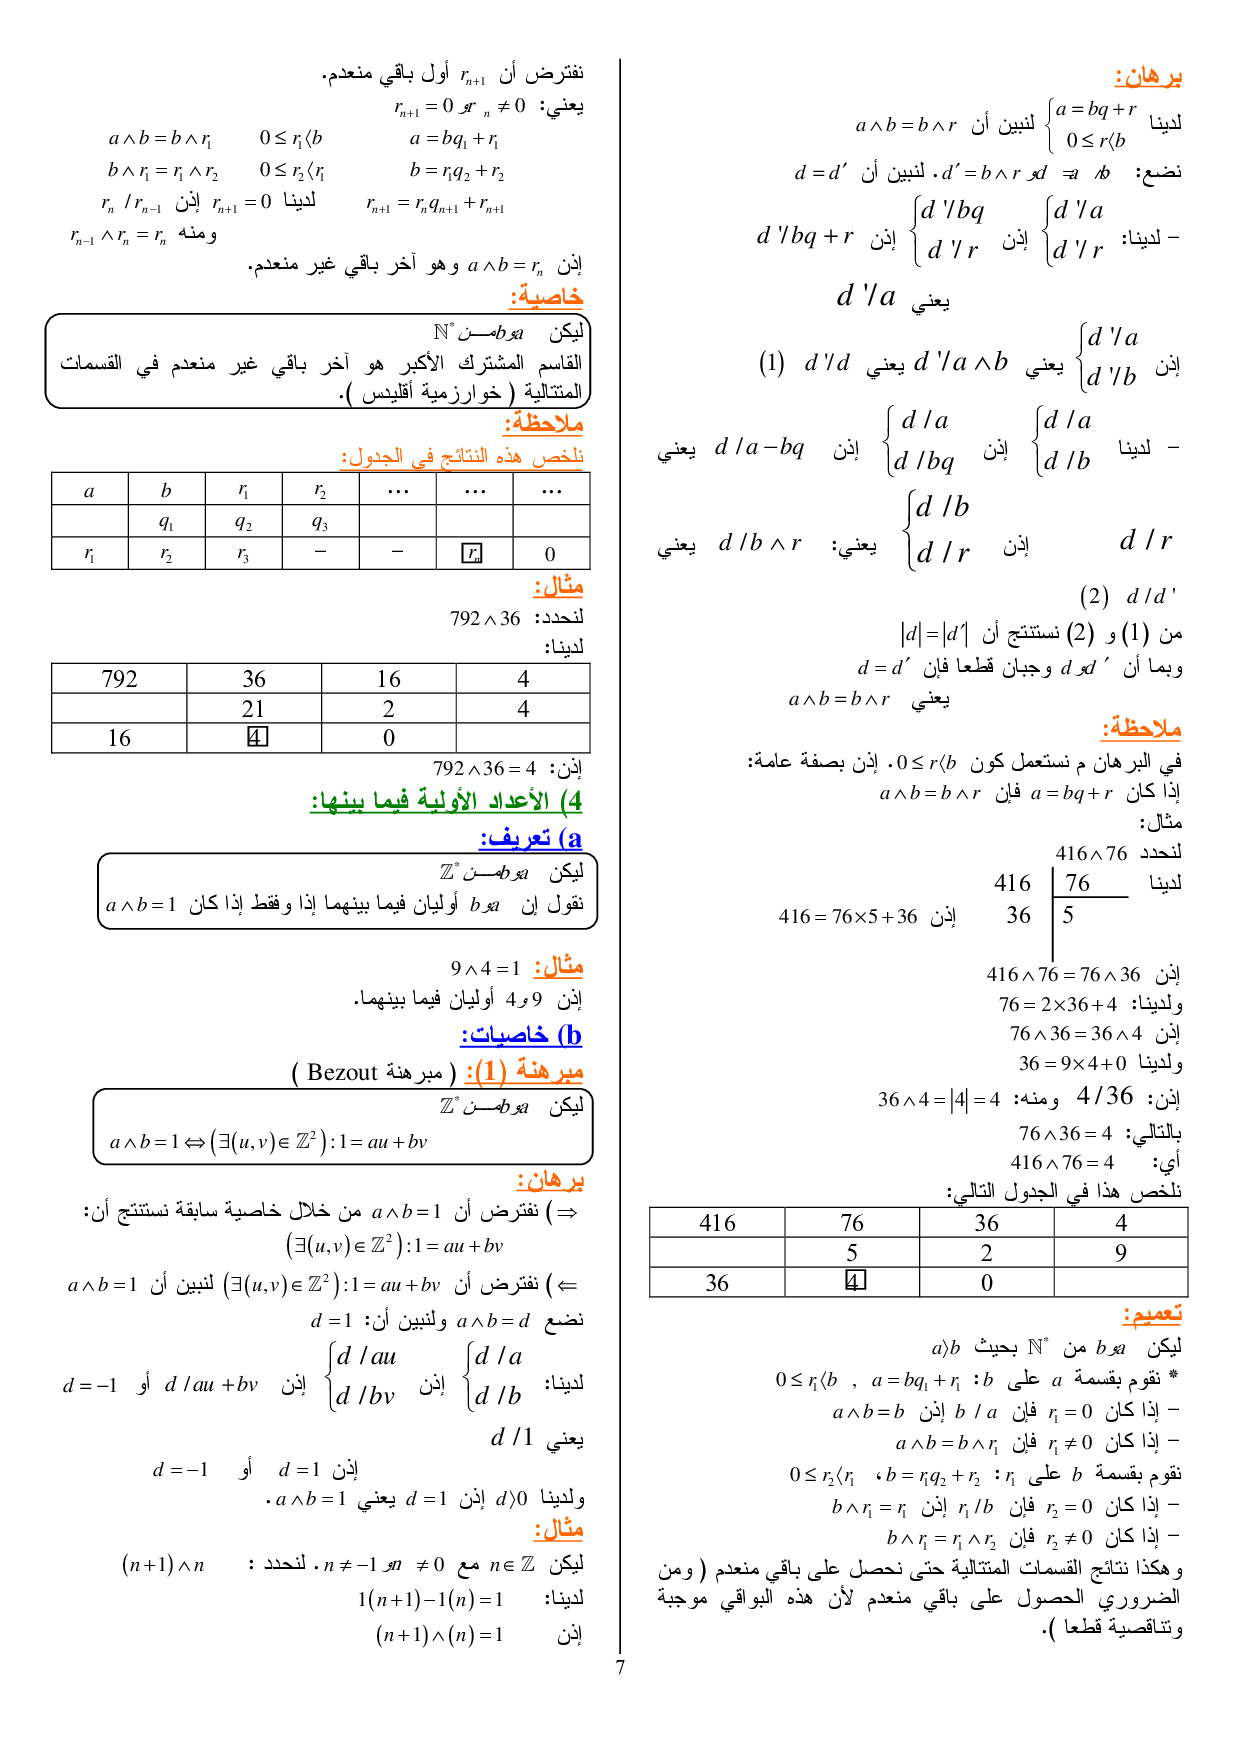 برهان:
لدينا { a = bq + r ; 0 ≤ r⟨b لنبين أن a ∧ b = b ∧ r
نضع: d = a ∧ b و d′ = b ∧ r. لنبين أن d = d′
– لدينا: { d '/ a ; d '/ r إذن { d '/ bq ; d '/ r إذن d '/ bq + r
يعني d '/ a
إذن { d '/ a ; d '/ b يعني d '/ a ∧ b يعني d '/ d (1)
– لدينا { d / a ; d / b إذن { d / a ; d / bq إذن d / a − bq يعني
d / r إذن { d / b ; d / r يعني: d / b ∧ r يعني
(2) d / d '
من (1) و (2) نستنتج أن |d| = |d′|
وبما أن d و d′ وجبان قطعا فإن d = d′
يعني a ∧ b = b ∧ r
ملاحظة:
في البرهان م نستعمل كون 0 ≤ r⟨b. إذن بصفة عامة:
إذا كان a = bq + r فإن a ∧ b = b ∧ r
مثال:
لنحدد 416 ∧ 76
لدينا 416 | 76
36 | 5 إذن 416 = 76×5 + 36
إذن 416 ∧ 76 = 76 ∧ 36
ولدينا: 76 = 2×36 + 4
إذن 76 ∧ 36 = 36 ∧ 4
ولدينا 36 = 9×4 + 0
إذن: 4 / 36 ومنه: 36 ∧ 4 = |4| = 4
بالتالي: 76 ∧ 36 = 4
أي: 416 ∧ 76 = 4
نلخص هذا في الجدول التالي:
416 76 36 4
5 2 9
36 4 0
تعميم:
ليكن a و b من ℕ* بحيث a⟩b
* نقوم بقسمة a على b : a = bq₁ + r₁ , 0 ≤ r₁⟨b
– إذا كان r₁ = 0 فإن b / a إذن a ∧ b = b
– إذا كان r₁ ≠ 0 فإن a ∧ b = b ∧ r₁
نقوم بقسمة b على r₁ : b = r₁q₂ + r₂ ، 0 ≤ r₂⟨r₁
– إذا كان r₂ = 0 فإن r₁ / b إذن b ∧ r₁ = r₁
– إذا كان r₂ ≠ 0 فإن b ∧ r₁ = r₁ ∧ r₂
وهكذا نتائج القسمات المتتالية حتى نحصل على باقي منعدم ( ومن
الضروري الحصول على باقي منعدم لأن هذه البواقي موجبة
وتناقصية قطعا ).
نفترض أن rₙ₊₁ أول باقي منعدم.
يعني: rₙ ≠ 0 و rₙ₊₁ = 0
a = bq₁ + r₁ 0 ≤ r₁⟨b a ∧ b = b ∧ r₁
b = r₁q₂ + r₂ 0 ≤ r₂⟨r₁ b ∧ r₁ = r₁ ∧ r₂
rₙ₊₁ = rₙqₙ₊₁ + rₙ₊₁ لدينا rₙ₊₁ = 0 إذن rₙ / rₙ₋₁
ومنه rₙ₋₁ ∧ rₙ = rₙ
إذن a ∧ b = rₙ وهو آخر باقي غير منعدم.
خاصية:
ليكن a و b مـــن ℕ*
القاسم المشترك الأكبر هو آخر باقي غير منعدم في القسمات
المتتالية ( خوارزمية أقليدس ).
ملاحظة:
نلخص هذه النتائج في الجدول:
a b r₁ r₂ ... ... ...
q₁ q₂ q₃
r₁ r₂ r₃ – – rₙ 0
مثال:
لنحدد: 792 ∧ 36
لدينا:
792 36 16 4
21 2 4
16 4 0
إذن: 792 ∧ 36 = 4
4) الأعداد الأولية فيما بينها:
a) تعريف:
ليكن a و b مـــن ℤ*
نقول إن a و b أوليان فيما بينهما إذا وفقط إذا كان a ∧ b = 1
مثال: 9 ∧ 4 = 1
إذن 9 و 4 أوليان فيما بينهما.
b) خاصيات:
مبرهنة (1): ( مبرهنة Bezout )
ليكن a و b مـــن ℤ*
a ∧ b = 1 ⇔ (∃(u,v) ∈ ℤ²) : 1 = au + bv
برهان:
⇒) نفترض أن a ∧ b = 1 من خلال خاصية سابقة نستنتج أن:
(∃(u,v) ∈ ℤ²) : 1 = au + bv
⇐) نفترض أن (∃(u,v) ∈ ℤ²) : 1 = au + bv لنبين أن a ∧ b = 1
نضع a ∧ b = d ولنبين أن: d = 1
لدينا: { d / a ; d / b إذن { d / au ; d / bv إذن d / au + bv أو d = −1
يعني d / 1
إذن d = 1 أو d = −1
ولدينا d⟩0 إذن d = 1 يعني a ∧ b = 1.
مثال:
ليكن n ∈ ℤ مع n ≠ 0 و n ≠ −1. لنحدد : (n+1) ∧ n
لدينا: 1(n+1) − 1(n) = 1
إذن (n+1) ∧ (n) = 1
7